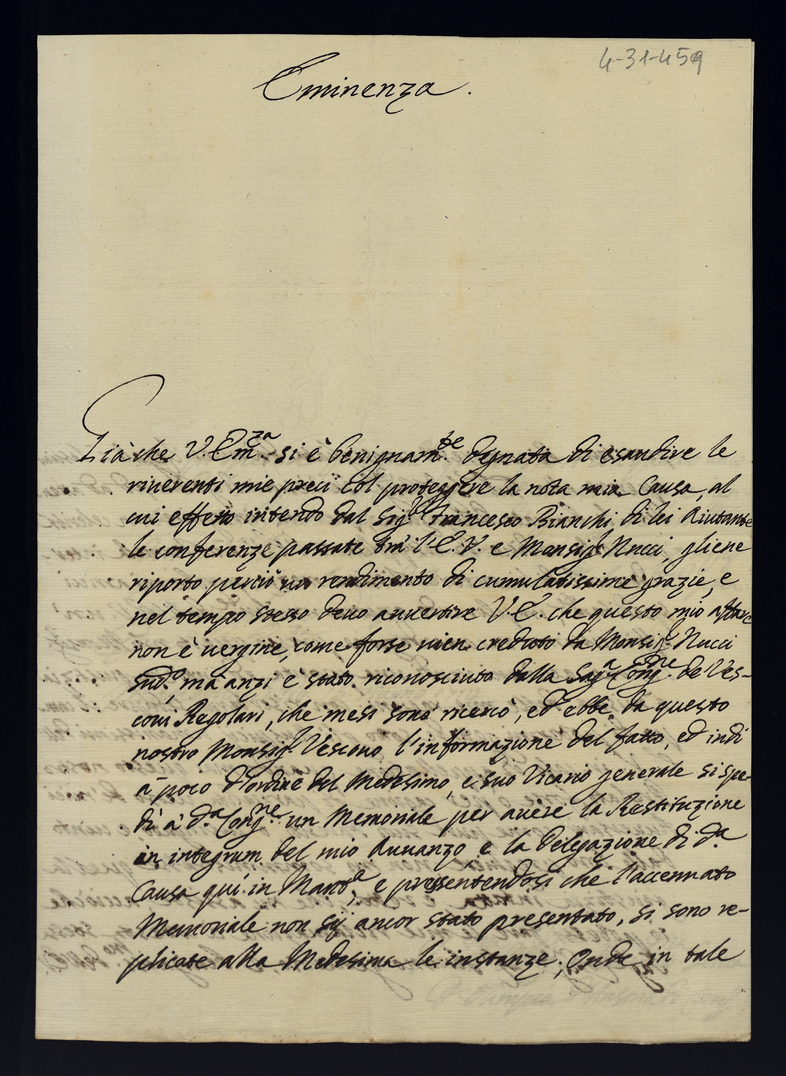 4-31-459
Eminenza.
Già che V. Em.za si è benignam.te degnata di esaudire le
riverenti mie preci col proteggere la nota mia Causa, al
cui effetto intendo dal Sig.r Francesco Bianchi di lei Aiutante
le conferenze passate trà l'E. V. e Monsig.r Nucci, gliene
riporto perciò un rendimento di cumulatissime grazie, e
nel tempo stesso devo avvertire V. E. che questo mio affare
non è vergine, come forse vien creduto da Monsig.r Nucci
Sud.o, mà anzi è stato riconosciuto dalla Sag.a Cong.ne de Ves-
covi Regolari, che mesi sono ricercò, ed ebbe da questo
nostro Monsig.r Vescovo l'informazione del fatto, ed indi
à poco d'ordine del Medesimo, e suo Vicario generale si spe-
dì à d.a Cong.ne un Memoriale per avere la Restituzione
in integrum del mio Avvanzo e la Delegazione di d.a
Causa quì in Mant.a, e presentendosi che l'accennato
Memoriale non sij ancor stato presentato, si sono re-
plicate alla Medesima le instanze; Onde in tale